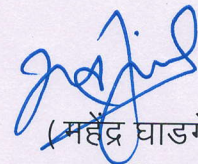 (महेंद्र घाडगे